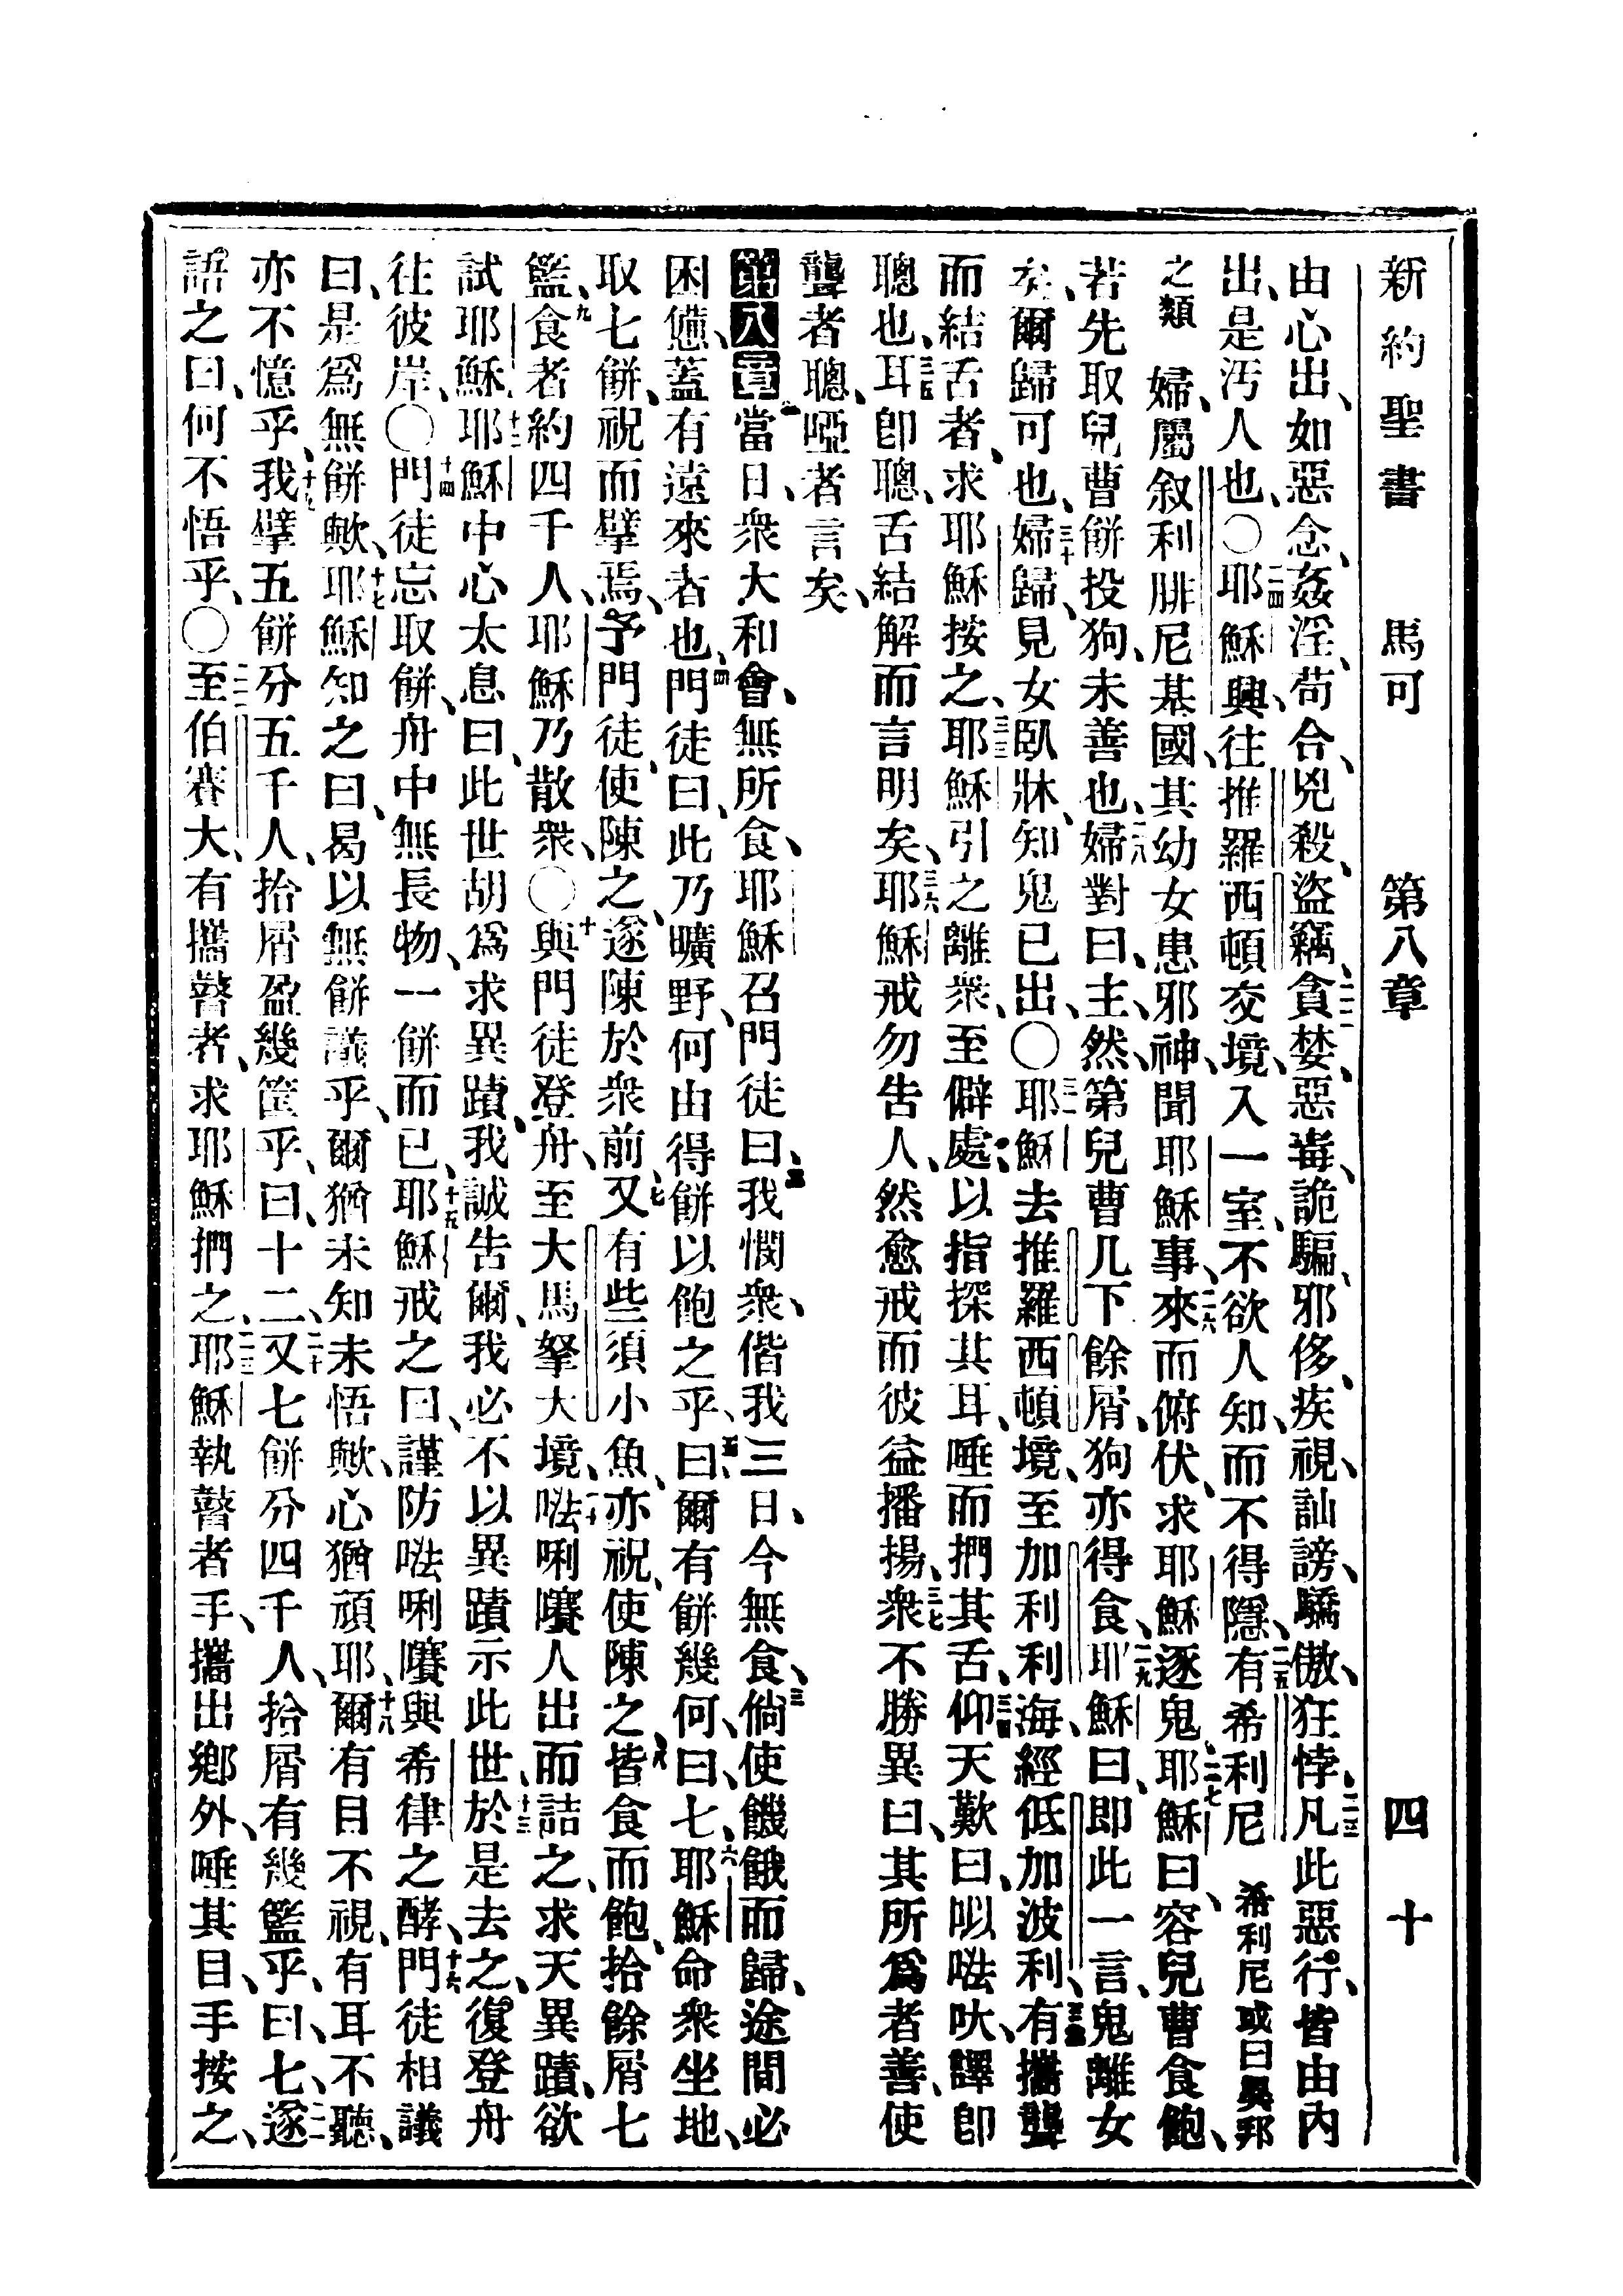 新約聖書 馬可 第八章 四十
由心出、如惡念、姦淫、苟合、兇殺、盜竊、二二貪婪、惡毒、詭騙、邪侈、疾視、訕謗、驕傲、狂悖、二三凡此惡行、皆由內
出、是污人也、〇二四耶穌興、往推羅西頓交境、入一室、不欲人知、而不得隱、二五有希利尼 希利尼或曰異邦
之類 婦、屬叙利腓尼基國、其幼女患邪神、聞耶穌事、二六來而俯伏、求耶穌逐鬼、二七耶穌曰、容兒曹食飽、
若先取兒曹餅投狗、未善也、二八婦對曰、主、然、第兒曹几下餘屑、狗亦得食、二九耶穌曰、即此一言、鬼離女
矣、爾歸可也、三十婦歸、見女臥牀、知鬼已出、〇三一耶穌去推羅西頓境、至加利利海、經低加波利、三二有攜聾
而結舌者、求耶穌按之、三三耶穌引之離衆、至僻處、以指探其耳、唾而捫其舌、三四仰天歎曰、㕥㗲吠、譯即
聰也、三五耳卽聰、舌結解而言明矣、三六耶穌戒勿告人、然愈戒而彼益播揚、三七衆不勝異曰、其所爲者善、使
聾者聰、啞者言矣、
第八章 一當日、衆大和會、無所食、耶穌召門徒曰、二我憫衆、偕我三日、今無食、三倘使饑餓而歸、途間必
困憊、蓋有遠來者也、四門徒曰、此乃曠野、何由得餅以飽之乎、五曰、爾有餅幾何、曰、七、六耶穌命衆坐地、
取七餅、祝而擘焉、予門徒、使陳之、遂陳於衆前、七又有些須小魚、亦祝、使陳之、八皆食而飽、拾餘屑七
籃、九食者約四千人、耶穌乃散衆、〇十與門徒登舟、至大馬拏大境、十一𠵽唎㘔人出而詰之、求天異蹟、欲
試耶穌、十二耶穌中心太息曰、此世胡爲求異蹟、我誠告爾、我必不以異蹟示此世、十三於是去之、復登舟
往彼岸、〇十四門徒忘取餅、舟中無長物、一餅而已、十五耶穌戒之曰、謹防𠵽唎㘔與希律之酵、十六門徒相議
曰、是爲無餅歟、十七耶穌知之曰、曷以無餅議乎、爾猶未知未悟歟、心猶頑耶、十八爾有目不視、有耳不聽、
亦不憶乎、十九我擘五餅分五千人、拾屑盈幾筐乎、曰、十二、二十又七餅分四千人、拾屑有幾籃乎、曰、七、二一遂
語之曰、何不悟乎、〇二二至伯賽大、有攜瞽者、求耶穌捫之、二三耶穌執瞽者手、攜出鄉外、唾其目、手按之、